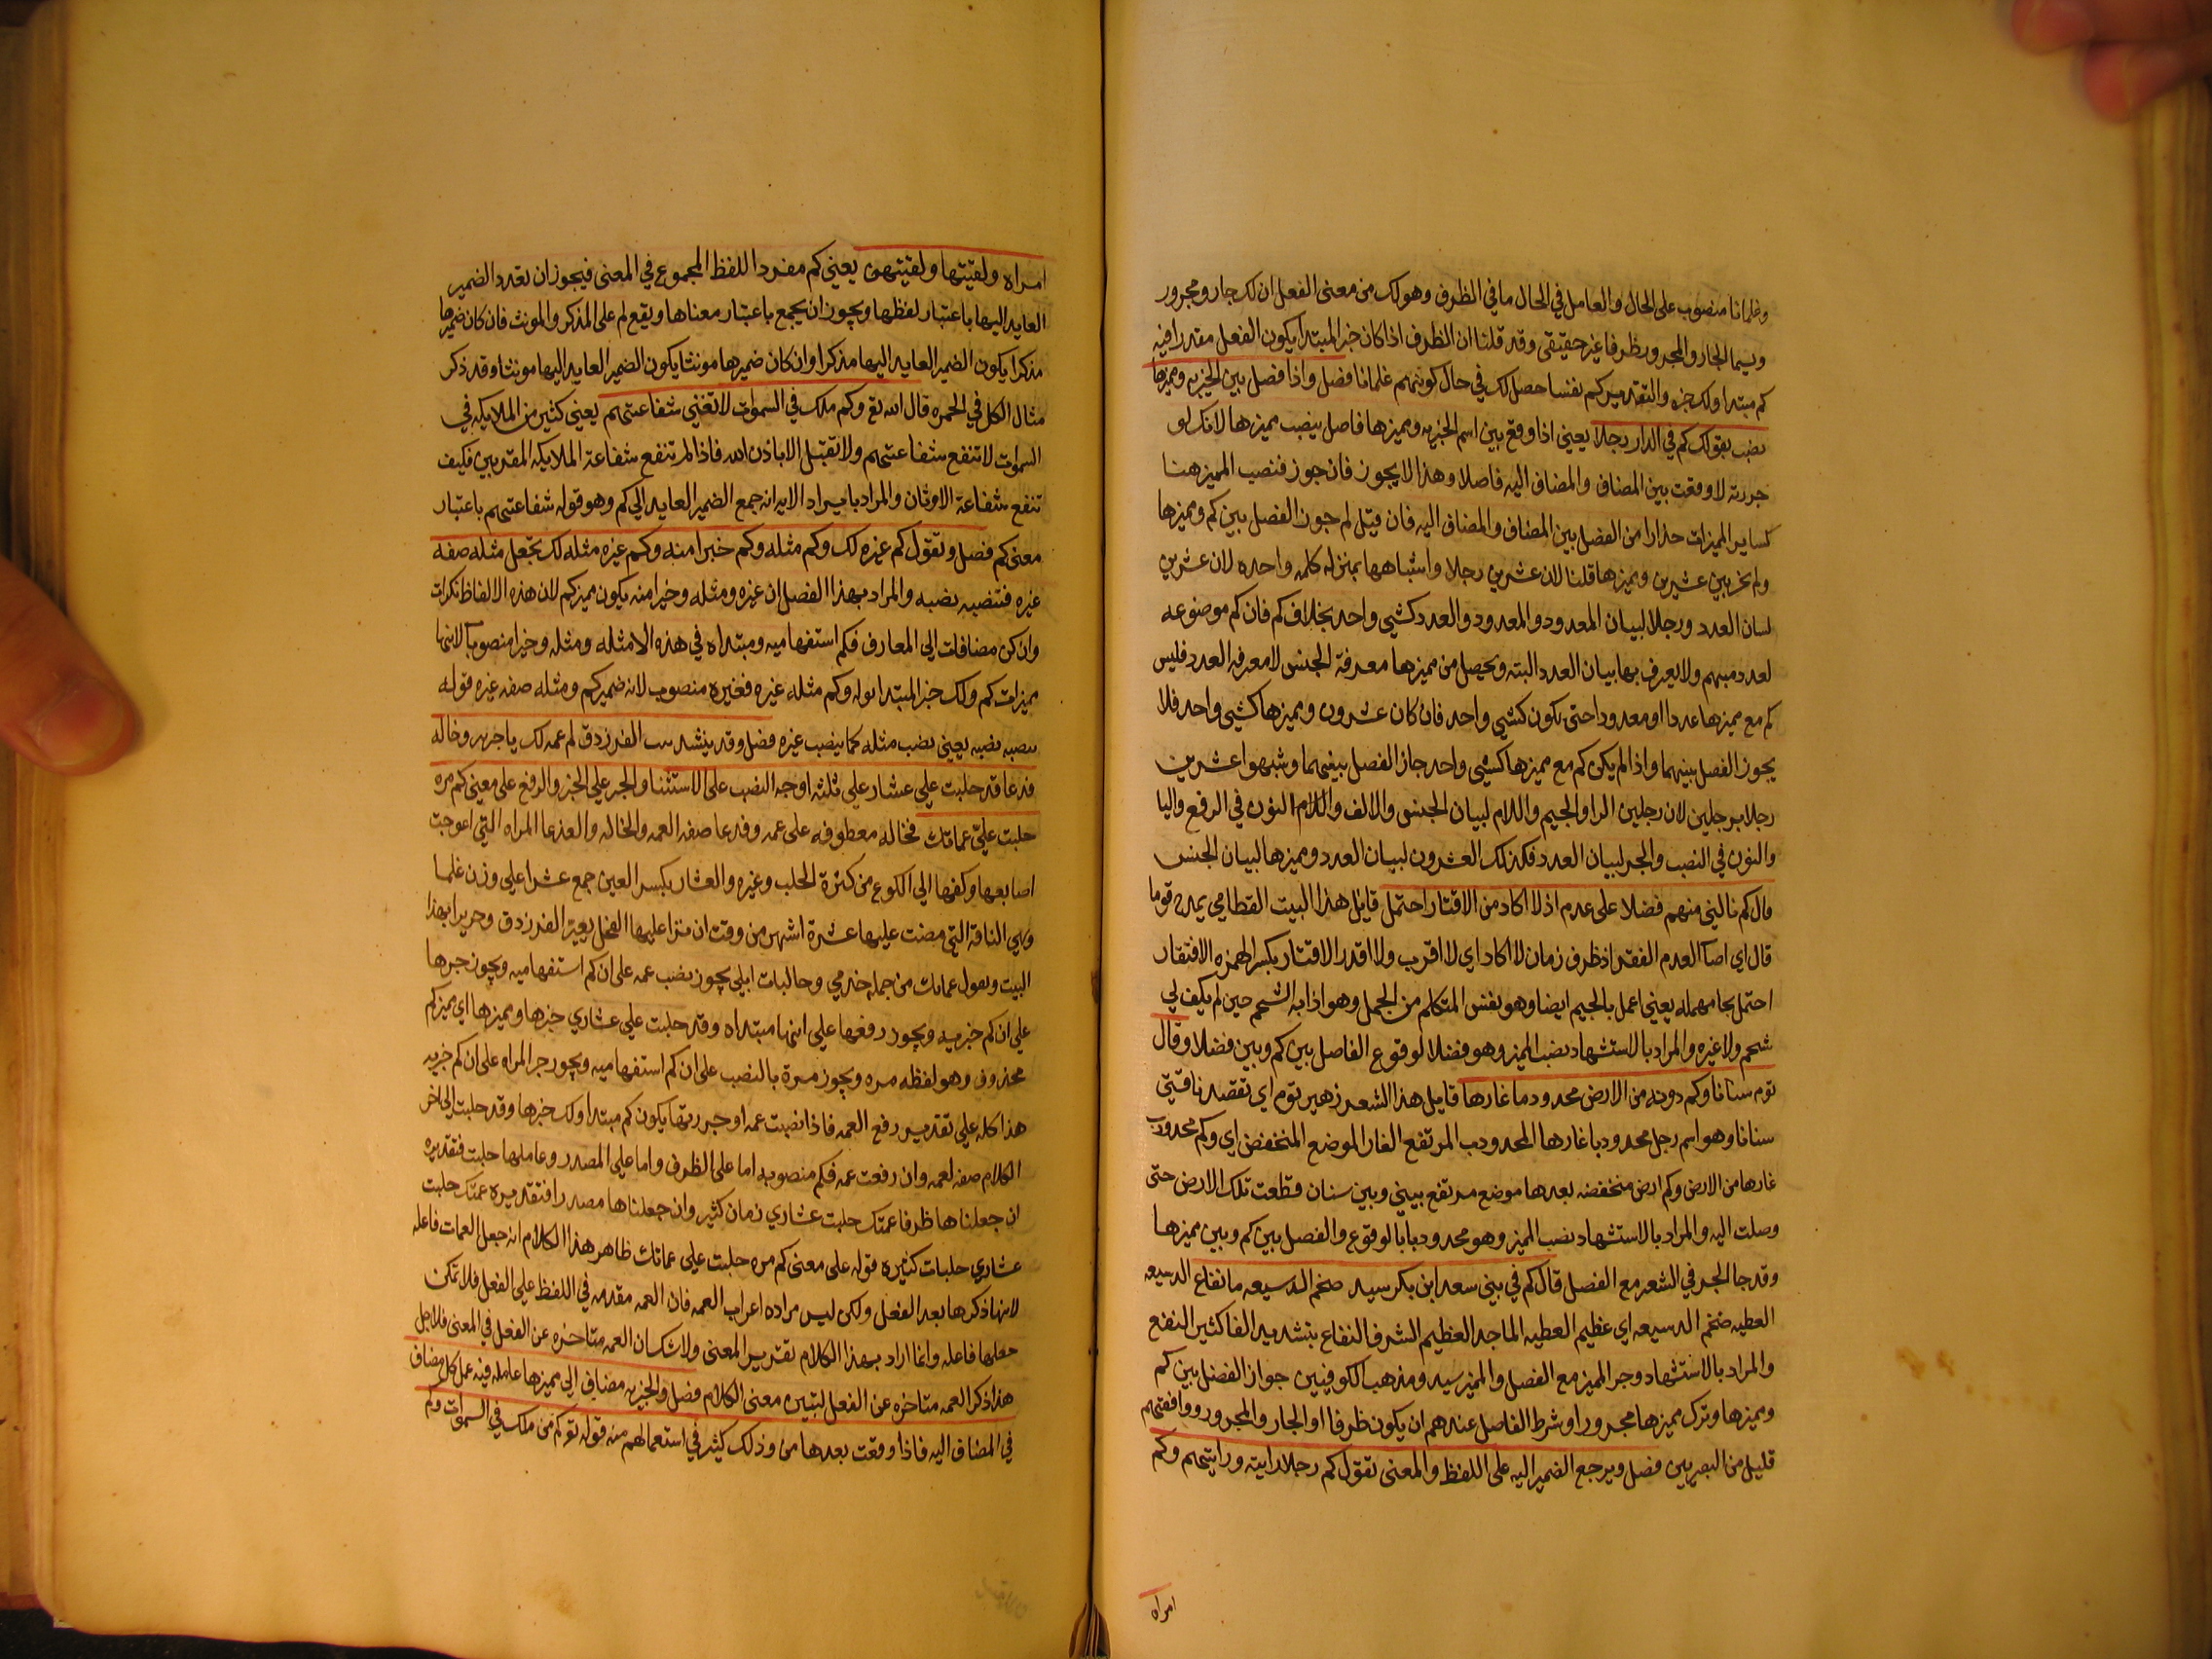 وغلمانا منصوب على الحال والعامل في الحال ما في الظرف وهو لك من معنى الفعل ان لك جار ومجرور
ويسما الجار والمجرور ظرفا غير حقيقي وقد قلنا ان الظرف اذا كان خبر المبتدا يكون الفعل مقدرا فيه
كم مبتدا ولك خبره والتقدير كم نفسا حصل لك في حال كونهم غلمانا فصل واذا فصل بين الخبريه ومميزها
نصب بقولك كم في الدار رجلا يعني اذا وقع بين اسم الخبريه ومميزها فاصل ينصب مميزها لانك لو
جررته لاوقعت بين المضاف والمضاف اليه فاصلا وهذا لا يجوز فان جوز فنصب المميز هنا
كساير المميزات حذارا من الفصل بين المضاف والمضاف اليه فان قيل لم جوز الفصل بين كم ومميزها
ولم يجز بين عشرين ومميزها قلنا لان عشرين رجلا واشباهها بمنزله كلمه واحده لان عشرين
لسان العدد ورجلا لبيان المعدود والمعدود والعدد كشي واحد بخلاف كم فان كم موضوعه
لعدد مبهم ولا يعرف بها بيان العدد البته ويحصل من مميزها معرفة الجنس لا معرفه العدد فليس
كم مع مميزها عددا او معدودا حتى يكون كشي واحد فان كان عشرون ومميزها كشي واحد فلا
يجوز الفصل بينهما واذا لم يكن كم مع مميزها كشي واحد جاز الفصل بينهما وشبهوا عشرين
رجلا برجلين لان رجلين الرا والجيم واللام لبيان الجنس والالف واللام النون في الرفع واليا
والنون في النصب والجر لبيان العدد فكذلك العشرون لبيان العدد ومميزها لبيان الجنس
قال كم نالني منهم فضلا على عدم اذ لا اكاد من الاقتار احتمل قايل هذا البيت القطامي يمدح قوما
قال اي اصا العدم الفقر اذ ظرف زمان لا اكاد اي لا اقرب ولا اقدر الاقتار بكسر الهمزه الافتقار
احتمل بحا مهمله يعني اعمل بالجيم ايضا وهو بفنس المتكلم من الجمل وهو اذابه الشحم حين لم يكف لي
شحم ولا غيره والمراد بالاستشهاد نصب المميز وهو فضلا لوقوع الفاصل بين كم وبين فضلا وقال
توم سنانا وكم دونه من الارض محدودما غارها قايل هذا الشعر زهير توم اي تقصد ناقتي
سنانا وهو اسم رجل محدودبا غارها المحدودب المرتفع الغار الموضع المنخفض اي وكم محدودب
غارها من الارض وكم ارض منخفضه بعدها موضع مرتفع بيني وبين سنان قطعت تلك الارض حتى
وصلت اليه والمراد بالاستشهاد نصب المميز وهو محدودبا بالوقوع والفصل بين كم وبين مميزها
وقد جا الجر في الشعر مع الفصل قال كم في بني سعد ابن بكر سيد ضخم الدسيعه ماجد نفاع الدسيعه
العطيه ضخم الدسيعه اي عظيم العطيه الماجد العظيم الشرف النفاع بتشديد الفا كثير النفع
والمراد بالاستشهاد وجر المميز مع الفصل والمميز سيد ومذهب الكوفيين جواز الفصل بين كم
ومميزها وترك مميزها مجرورا وشرط الفاصل عندهم ان يكون ظرفا او الجار والمجرور ووافقتهم
قليل من البصريين فصل ويرجع الضمير اليه على اللفظ والمعنى تقول كم رجلا رايته ورايتهم وكم
امراه
امراه ولقيتها ولقيتهن يعني كم مفردا اللفظ المجموع في المعنى فيجوز ان تعدد الضمير
العايد اليها باعتبار لفظها ويجوز ان يجمع باعتبار معناها ويقع لم على المذكر والمونث فان كان ضميرها
مذكرا يكون الضمير العايد اليها مذكرا وان كان ضميرها مونثا يكون الضمير العايد اليها مونثا وقد ذكر
مثال الكل في الحمره قال الله تع وكم ملك في السموات لا تغني شفاعتهم يعني كثير من الملايكه في
السموات لا تنفع شفاعتهم ولا تقبل الا باذن الله فاذا لم تنفع شفاعة الملايكه المقربين فكيف
تنفع شفاعة الاوثان والمراد بايراد الايه انه جمع الضمير العايد الى كم وهو قوله شفاعتهم باعتبار
معنى كم فصل وتقول كم غيره لك وكم مثله وكم خبرا منه وكم غيره مثله لك تجعل مثله صفه
غيره فتنصبه نصبه والمراد بهذا الفصل ان غيره ومثله وخيرا منه يكون مميز كم لان هذه الالفاظ نكرات
وان كن مضافات الى المعارف فكم استفهاميه ومبتداه في هذه الامثله ومثله وخيرا منصوب لانها
مميزات كم ولك خبر المبتدا قوله وكم مثله غيره فغيره منصوب لانه ضمير كم ومثله صفه غيره قوله
تنصبه نصبه يعني نصب مثله كما ينصب غيره فصل وقد ينشد بيت الفرزدق لم عمه لك يا جرير وخاله
فدعا قد حلبت علي عشار على ثلثه اوجه النصب على الاستثنا والجر على الخبر والرفع على معنى كم مره
حلبت علي عماتك فخاله معطوفه على عمه وفدعا صفه العمه والخاله والفدعا المراه التي اعوجت
اصابعها وكفها الى الكوع من كثرة الحلب وغيره والعشار بكسر العين جمع عشرا على وزن علما
وهي الناقة التي مضت عليها عشرة اشهر من وقت ان نزا عليها الفحل يعير الفرزدق وجريرا بهذا
البيت ويقول عماتك من جمله خدمي وحالبات ابلي يجوز نصب عمه على ان كم استفهاميه ويجوز جرها
على ان كم خبريه ويجوز رفعها على انها مبتداه وقد حلبت علي عشاري خبرها ومميزها اي مميز كم
محذوف وهو لفظه مره ويجوز مرة بالنصب على ان كم استفهاميه ويجوز جر المراه على ان كم خبريه
هذا كله على تقدير رفع العمه فاذا نصبت عمه او جررتها يكون كم مبتدا ولك خبرها وقد حلبت الى اخر
الكلام صفه لعمه وان رفعت عمه فكم منصوبه اما على الظرف واما على المصدر وعاملها حلبت فتقديره
ان جعلناها ظرفا عمتك حلبت عشاري زمان كثير وان جعلناها مصدرا فتقديره عمتك حلبت
عشاري حلبات كثيره قوله على معنى كم مره حلبت علي عماتك ظاهر هذا الكلام انه جعل العمات فاعله
لانها ذكرها بعد الفعل ولكن ليس مراده اعراب العمه فان العمه مقدمه في اللفظ على الفعل فلا تمكن
جعلها فاعله وانما اراد بهذا الكلام تقرير المعنى ولا شك ان العمه متاخره عن الفعل في المعنى فلاجل
هذا ذكر العمه متاخره عن الفعل لتبين معنى الكلام فصل والخبريه مضاف الى مميزها عامله فيه عمل كل مضاف
في المضاف اليه فاذا وقعت بعدها من وذلك كثير في استعمالهم منه قوله تع كم من ملك في السموات وكم